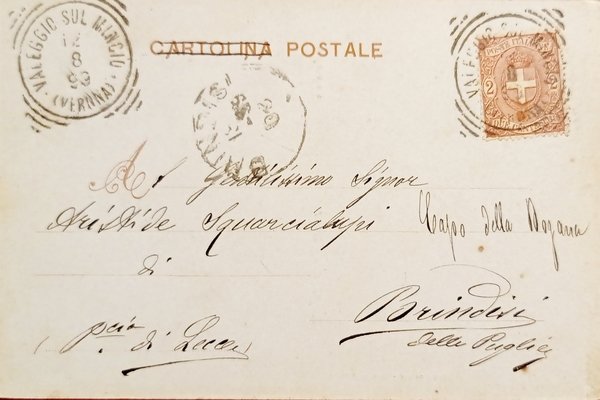 VALEGGIO SUL MINCIO
12
8
99
(VERONA)
CARTOLINA POSTALE
VALEGGIO SUL MINCIO
POSTE ITALIANE
2 2
DUE CENTESIMI
BRINDISI
Al Gentilissimo Signor
Aristide Squarcialupi
Capo della Dogana
di
Brindisi
(Pcia. di Lecce)
delle Puglie